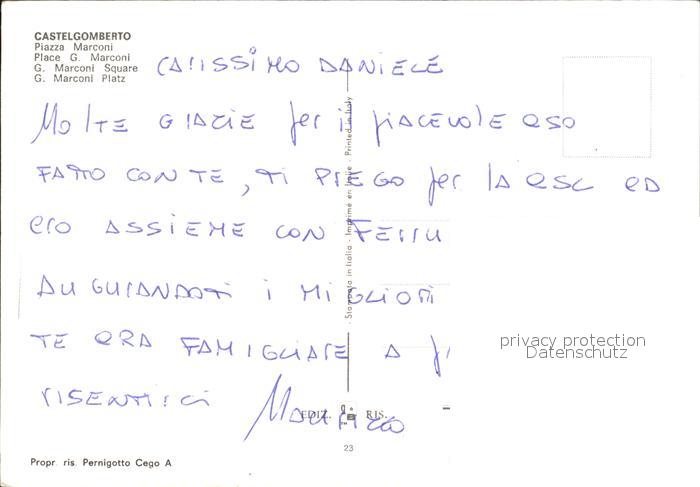 CASTELGOMBERTO
Piazza Marconi
Place G. Marconi
G. Marconi Square
G. Marconi Platz
CARISSIMO DANIELE
MOLTE GRAZIE per il PIACEVOLE QSO
FATTO CON TE, TI PREGO per LA QSL ED
ERO ASSIEME CON
AUGURANDOTI I MIGLIORI
TE ORA FAMIGLIARE A
RISENTIRCI Maurizio
Stampato in Italia - Imprimé en Italie - Printed in Italy
privacy protection
Datenschutz
EDIZ. RIS.
23
Propr. ris. Pernigotto Cego A